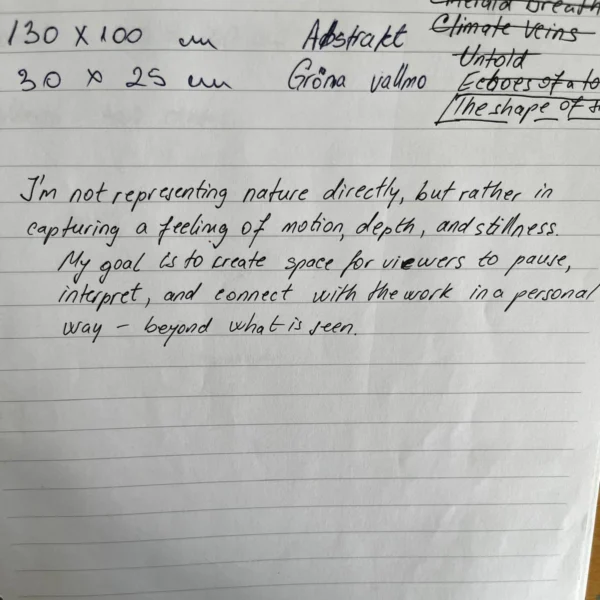 Emerald Breath
130 x 100 cm Abstrakt Climate Veins
Untold
30 x 25 cm Gröna vallmo Echoes of a
The shape of
I'm not representing nature directly, but rather in
capturing a feeling of motion, depth, and stillness.
My goal is to create space for viewers to pause,
interpret, and connect with the work in a personal
way – beyond what is seen.